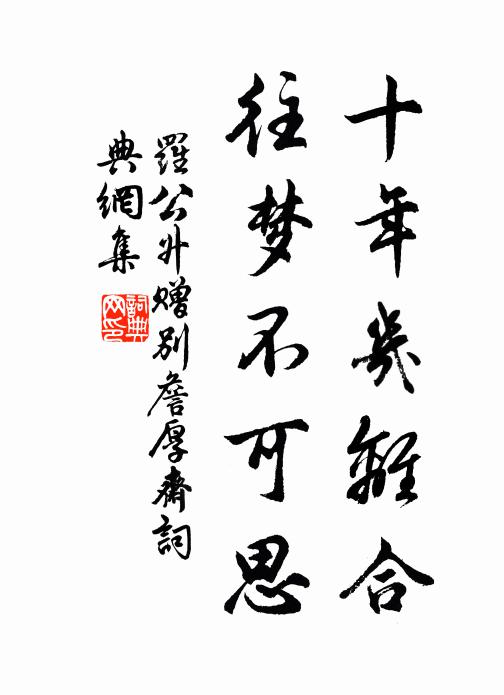 十年幾離合
往梦不可思
羅公升贈別詹厚齋詞
典網集
詞典網印